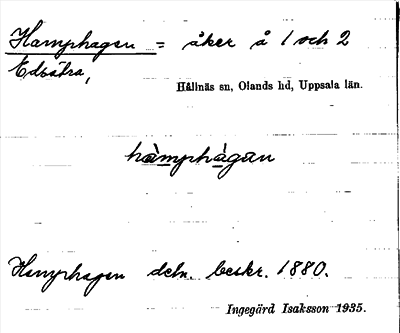 Hamphagen = åker å 1 och 2
Edsätra,
Hållnäs sn, Olands hd, Uppsala län.
hàmphàgan
Hamphagen deln. beskr. 1880.
Ingegärd Isaksson 1935.